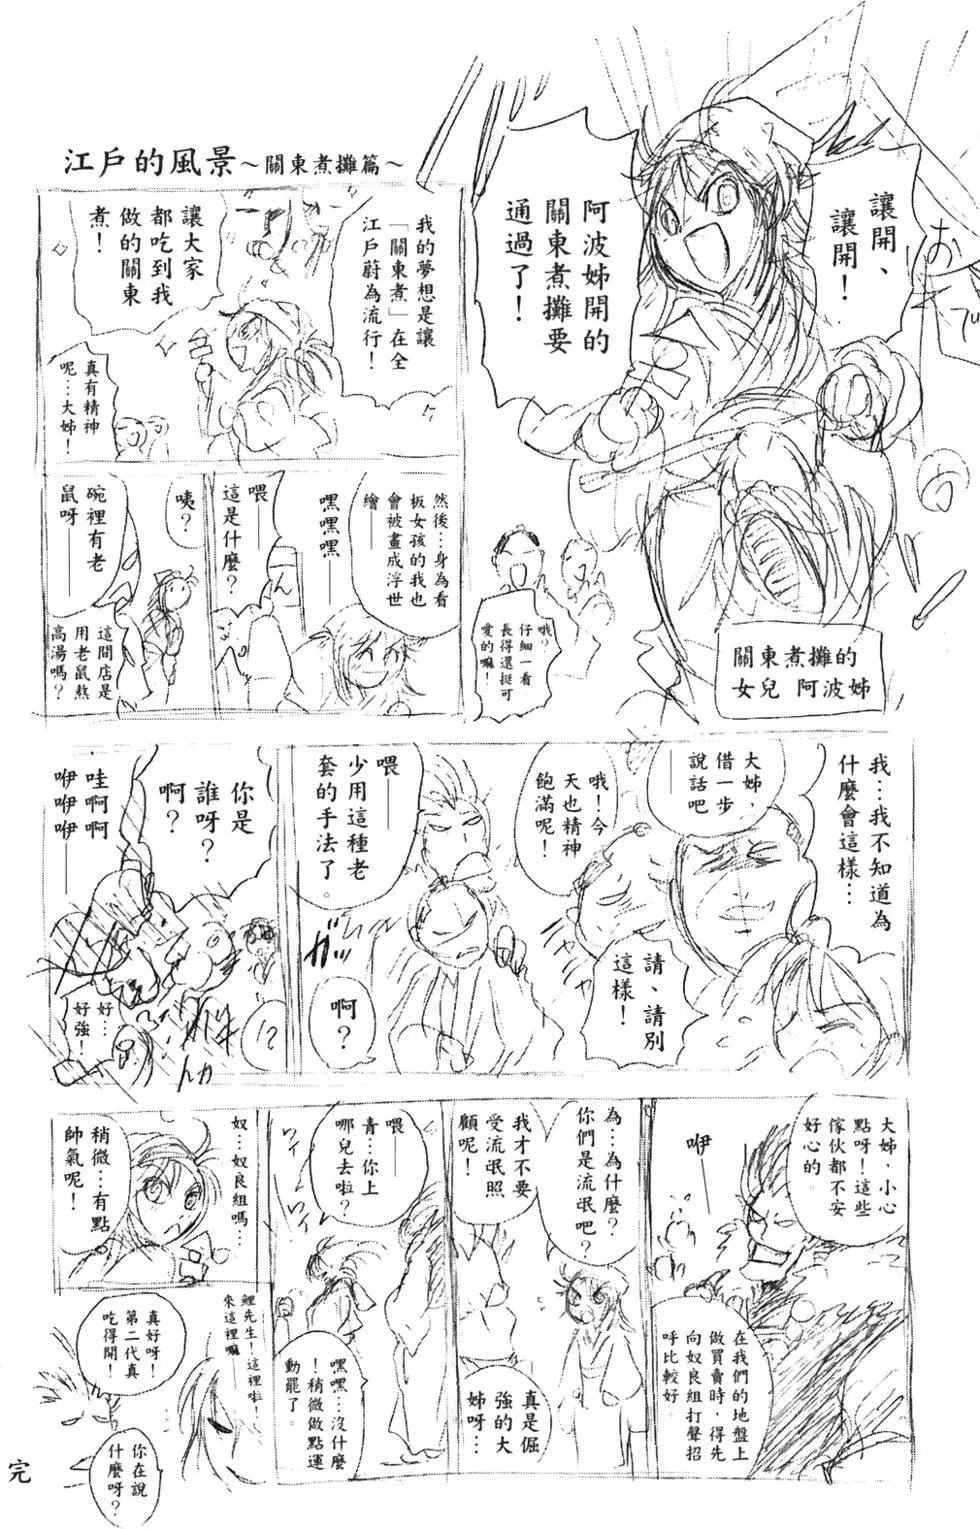 江戶的風景～關東煮攤篇～
讓開、
讓開！
阿波姊開的
關東煮攤要
通過了！
お
で
關東煮攤的
女兒 阿波姊
哦？
仔細一看
長得還挺可
愛的嘛！
我的夢想是讓
「關東煮」在全
江戶蔚為流行！
讓大家
都吃到我
做的關東
煮！
真有精神
呢…大姊！
然後…身為看
板女孩的我也
會被畫成浮世
繪——
嘿嘿嘿—
喂——
這是什麼？
咦？
碗裡有老
鼠呀——
這間店是
用老鼠熬
高湯嗎？
我…我不知道為
什麼會這樣…
大姊，
借一步
說話吧——
哦！今
天也精神
飽滿呢！
請、請別
這樣！
喂——
少用這種老
套的手法了。
啊？
ガッ
你是
誰呀？
啊？
哇啊啊
咿咿咿——
！？
好…
好強！
大姊，小心
點呀！這些
傢伙都不安
好心的。
咿——
在我們的地盤上
做買賣時，得先
向奴良組打聲招
呼比較好。
為…為什麼？
你們是流氓吧？
我才不要
受流氓照
顧呢！
真是倔
強的大
姊呀…
喂——
青…你上
哪兒去啦？
嘿嘿…沒什麼
！稍微做點運
動罷了。
ワイ
ワイ
奴…奴良組嗎…
稍微…有點
帥氣呢！
鯉先生！這裡啦！
來這裡嘛——
真好呀！
第二代真
吃得開！
你在說
什麼呀？
完